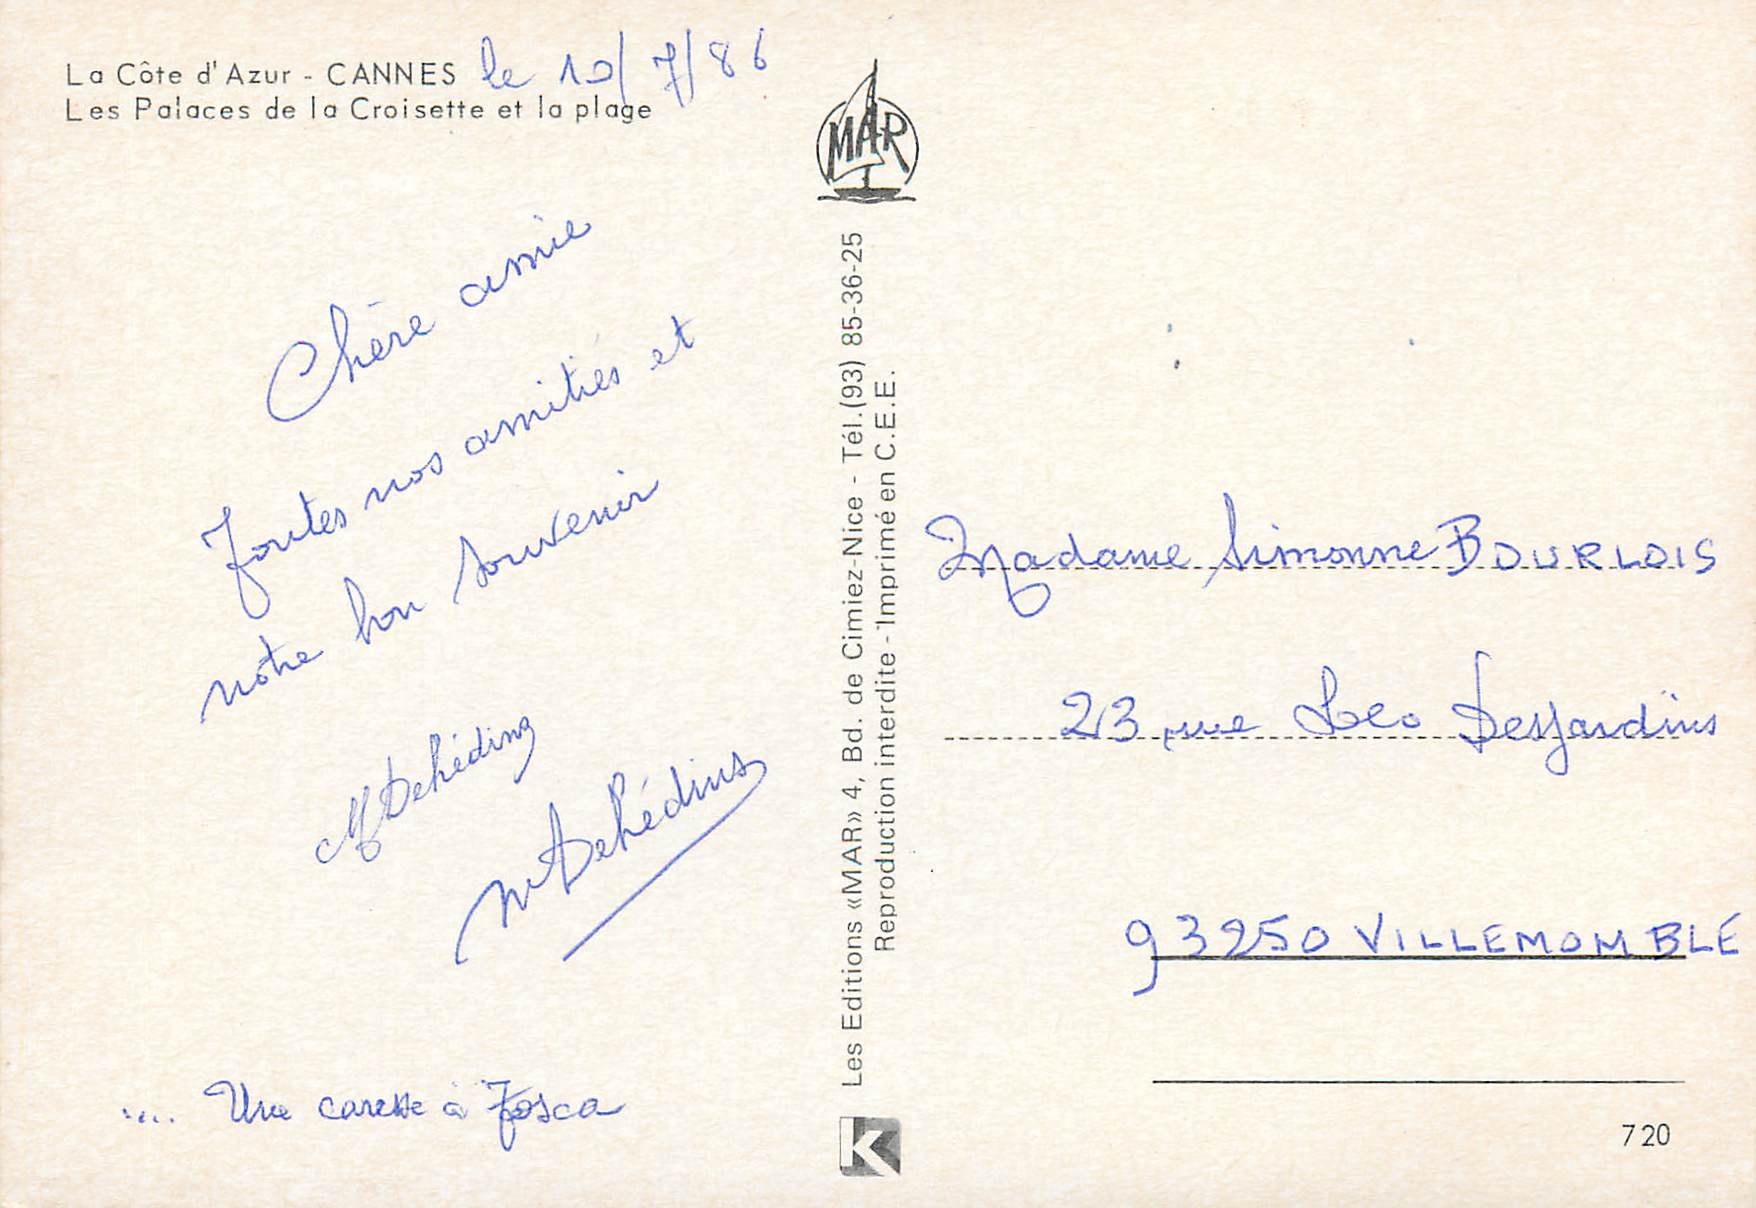 La Côte d'Azur - CANNES le 10/7/86
Les Palaces de la Croisette et la plage
Chère amie
Toutes nos amitiés et
notre bon souvenir
M Dehéding
M Dehéding
.... Une caresse à Tosca
MAR
Les Editions «MAR» 4, Bd. de Cimiez-Nice - Tél.(93) 85-36-25
Reproduction interdite - Imprimé en C.E.E.
K
Madame Simonne BOURLOIS
23 rue Léo Desjardins
93250 VILLEMOMBLE
720